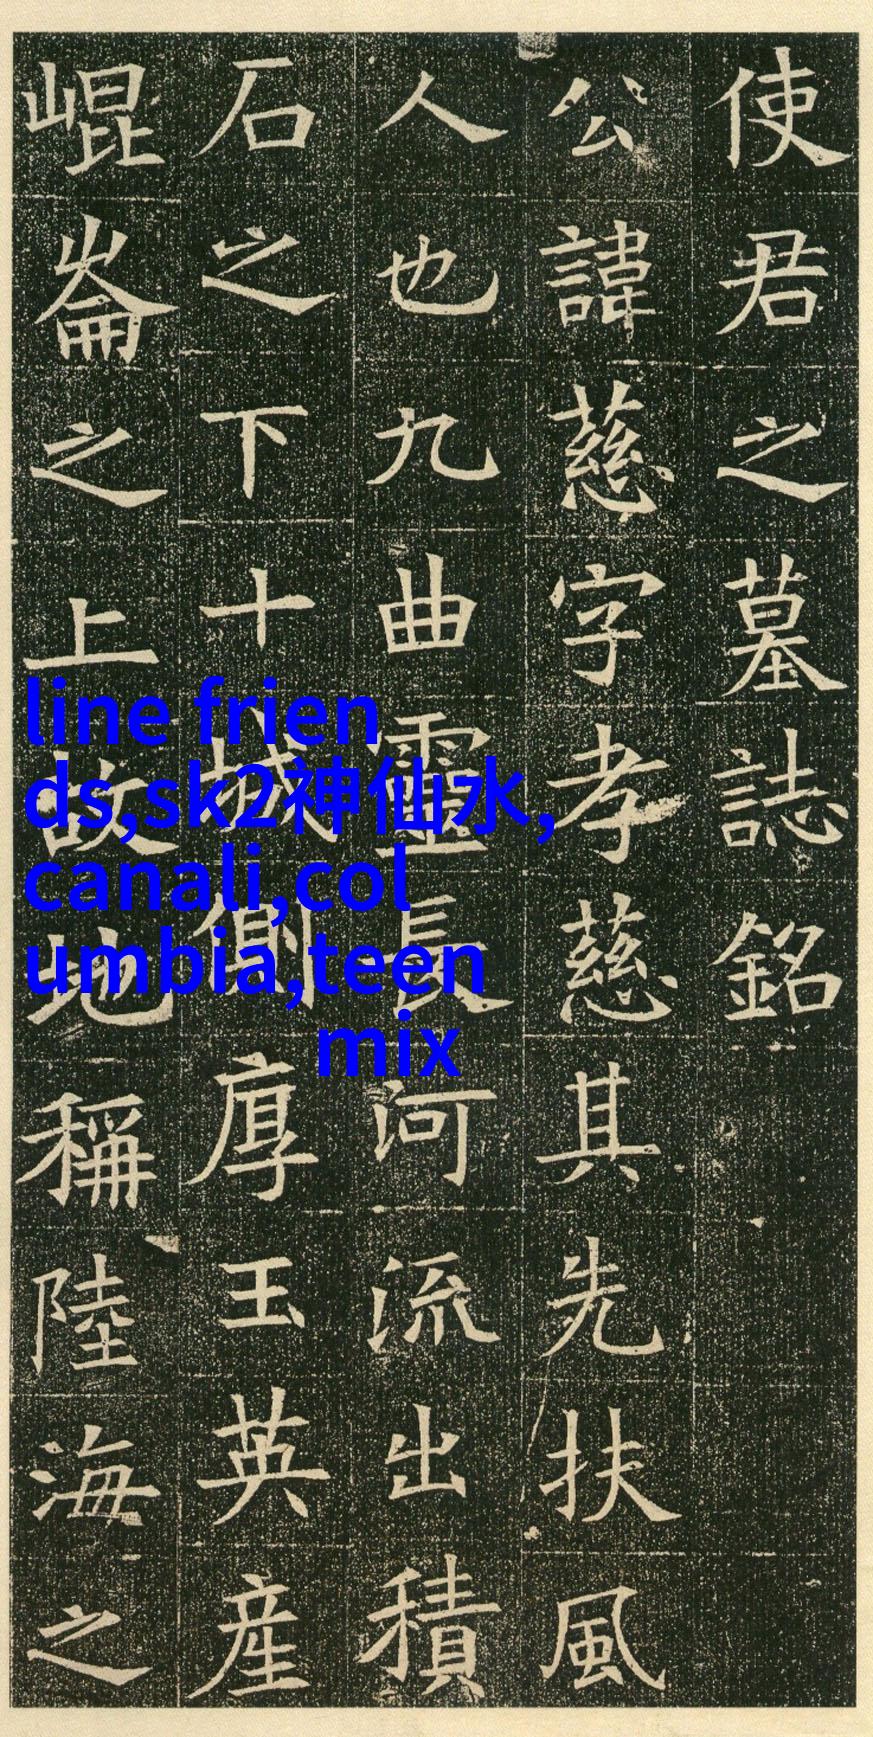 使君之墓誌銘
公諱慈字孝慈其先扶風
人也九曲靈長河流出積
石之下十城側厚玉英産
崐崙之上故地稱陸海之
line frien
ds,sk2神仙水,
canali,col
umbia,teen
mix